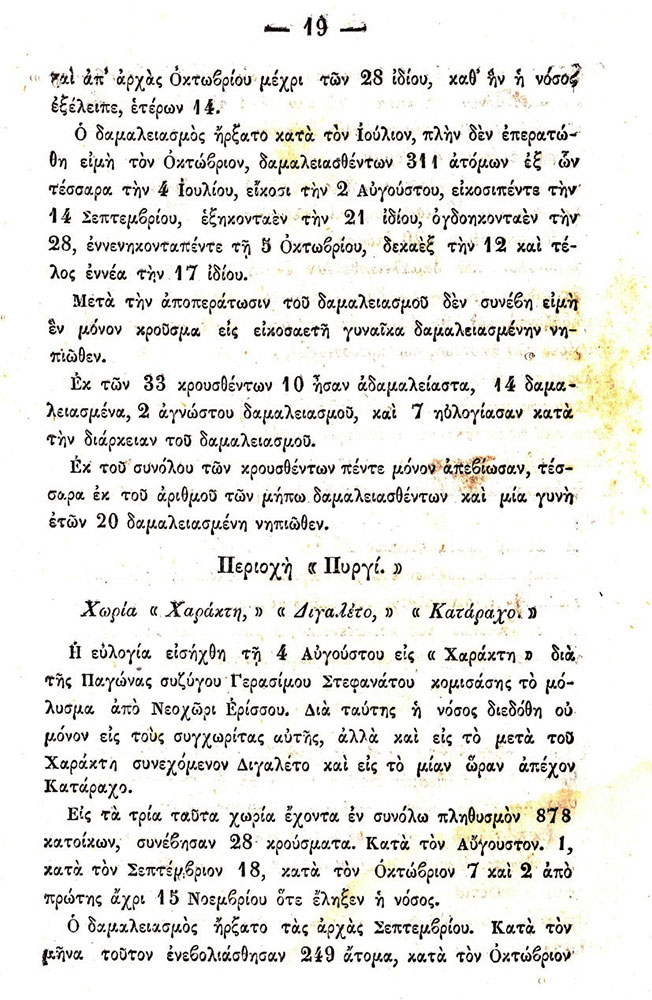 — 19 —
καὶ ἀπ' ἀρχὰς Ὀκτωβρίου μέχρι τῶν 28 ἰδίου, καθ' ἣν ἡ νόσος
ἐξέλειπε, ἑτέρων 14.
Ὁ δαμαλειασμὸς ἤρξατο κατὰ τὸν Ἰούλιον, πλὴν δὲν ἐπερατώ-
θη εἰμὴ τὸν Ὀκτώβριον, δαμαλειασθέντων 311 ἀτόμων ἐξ ὧν
τέσσαρα τὴν 4 Ἰουλίου, εἴκοσι τὴν 2 Αὐγούστου, εἰκοσιπέντε τὴν
14 Σεπτεμβρίου, ἑξηκονταὲν τὴν 21 ἰδίου, ὀγδοηκονταὲν τὴν
28, ἐννενηκονταπέντε τῇ 5 Ὀκτωβρίου, δεκαὲξ τὴν 12 καὶ τέ-
λος ἐννέα τὴν 17 ἰδίου.
Μετὰ τὴν ἀποπεράτωσιν τοῦ δαμαλειασμοῦ δὲν συνέβη εἰμὴ
ἓν μόνον κροῦσμα εἰς εἰκοσαετῆ γυναῖκα δαμαλειασμένην νη-
πιῶθεν.
Ἐκ τῶν 33 κρουσθέντων 10 ἦσαν ἀδαμαλείαστα, 14 δαμα-
λειασμένα, 2 ἀγνώστου δαμαλειασμοῦ, καὶ 7 ηὐλογίασαν κατὰ
τὴν διάρκειαν τοῦ δαμαλειασμοῦ.
Ἐκ τοῦ συνόλου τῶν κρουσθέντων πέντε μόνον ἀπεβίωσαν, τέσ-
σαρα ἐκ τοῦ ἀριθμοῦ τῶν μήπω δαμαλειασθέντων καὶ μία γυνὴ
ἐτῶν 20 δαμαλειασμένη νηπιῶθεν.
Περιοχὴ « Πυργί. »
Χωρία « Χαράκτη, » « Διγαλέτο, » « Κατάραχο. »
Ἡ εὐλογία εἰσήχθη τῇ 4 Αὐγούστου εἰς « Χαράκτη » διὰ
τῆς Παγώνας συζύγου Γερασίμου Στεφανάτου κομισάσης τὸ μό-
λυσμα ἀπὸ Νεοχῶρι Ἐρίσσου. Διὰ ταύτης ἡ νόσος διεδόθη οὐ
μόνον εἰς τοὺς συγχωρίτας αὐτῆς, ἀλλὰ καὶ εἰς τὸ μετὰ τοῦ
Χαράκτη συνεχόμενον Διγαλέτο καὶ εἰς τὸ μίαν ὥραν ἀπέχον
Κατάραχο.
Εἰς τὰ τρία ταῦτα χωρία ἔχοντα ἐν συνόλω πληθυσμὸν 878
κατοίκων, συνέβησαν 28 κρούσματα. Κατὰ τὸν Αὔγουστον. 1,
κατὰ τὸν Σεπτέμβριον 18, κατὰ τὸν Ὀκτώβριον 7 καὶ 2 ἀπὸ
πρώτης ἄχρι 15 Νοεμβρίου ὅτε ἔληξεν ἡ νόσος.
Ὁ δαμαλειασμὸς ἤρξατο τὰς ἀρχὰς Σεπτεμβρίου. Κατὰ τὸν
μῆνα τοῦτον ἐνεβολιάσθησαν 249 ἄτομα, κατὰ τὸν Ὀκτώβριον